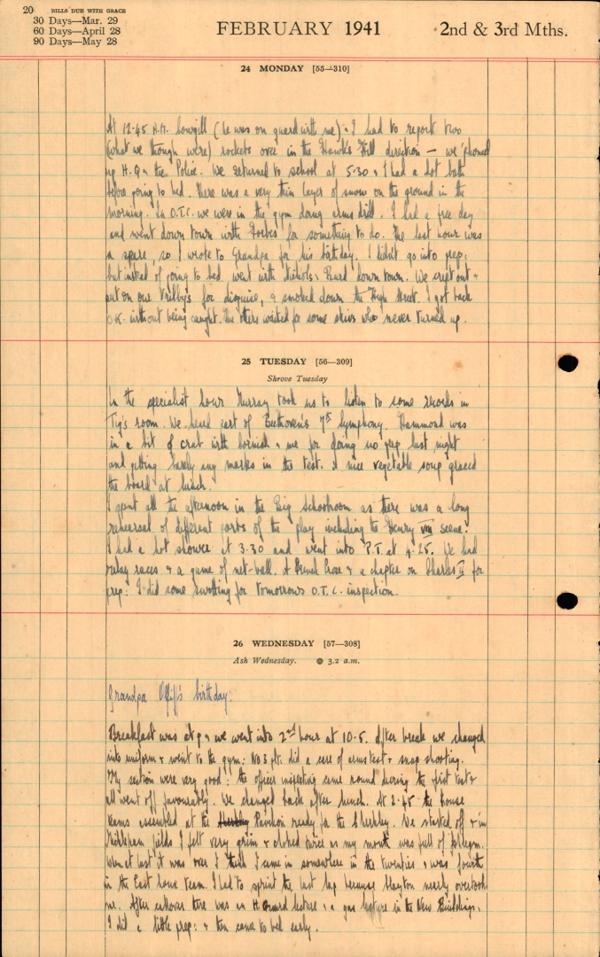 20 BILLS DUE WITH GRACE
30 Days—Mar. 29
60 Days—April 28
90 Days—May 28
FEBRUARY 1941
2nd & 3rd Mths.
24 MONDAY [55—310]
At 12.45 A.M. Cowgill (he was on guard with me) & I had to report two
(what we though were) rockets over in the Hawk's Hill direction — we 'phoned
up H.Q & the Police. We returned to school at 5.30 & I had a hot bath
before going to bed. There was a very thin layer of snow on the ground in the
morning. In O.T.C. we were in the gym doing arms drill. I had a free day
and went down town with Forbes for something to do. The last hour was
a spare, so I wrote to Grandpa for his birthday. I didn't go into prep;
but instead of going to bed, went with & down town. We crept out &
put on our trilby's for disguise, & smoked down the High Street. I got back
O.K. without being caught. The others waited for some skivs who never turned up.
25 TUESDAY [56—309]
Shrove Tuesday
In the specialist hour Murray took us to listen to some records in
Tig's room. We heard part of Beethoven's 7th Symphony. Hammond was
in a bit of a with & me for doing no prep last night
and getting barely any marks in the test. A nice vegetable soup graced
the board at lunch.
I spent all the afternoon in the Big Schoolroom as there was a long
rehearsal of different parts of the play including the Henry VIII scene.
I had a hot shower at 3.30 and went into P.T. at 4.25. We had
relay races & a game of net-ball. A French Prose & a chapter on Charles II for
prep: I did some swotting for tomorrows O.T.C. inspection.
26 WEDNESDAY [57—308]
Ash Wednesday. ● 3.2 a.m.
Grandpa birthday.
Breakfast was at 9 & we went into 2nd hour at 10-5. After break we changed
into uniform & went to the gym: No 3 plt. did a care of arms test & snap shooting.
My section were very good: the officer inspecting came round during the first test &
all went off favourably. We changed back after lunch. At 3.45 the house
teams assembled at the Pavilion ready for the. We started off & in
fields I felt very grim & choked twice as my mouth was full of phlegm.
When at last it was over I think I came in somewhere in the twenties & was fourth
in the East house team. I had to sprint the last lap because Clayton nearly overtook
me. After there was a H. Guard lecture & a gas lecture in the New Buildings.
I did a little prep: & then came to bed early.